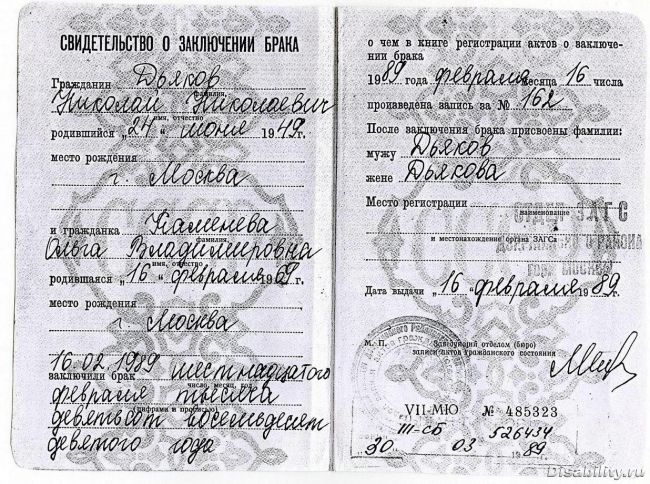 СВИДЕТЕЛЬСТВО О ЗАКЛЮЧЕНИИ БРАКА
Гражданин Дьяков
фамилия,
Николай Николаевич
имя, отчество
родившийся „24“ июня 1949 г.
место рождения
г. Москва
и гражданка Каменева
фамилия,
Ольга Владимировна
имя, отчество
родившаяся „16“ февраля 1969 г.
место рождения
г. Москва
16.02.1989
заключили брак шестнадцатого
число, месяц, год
февраля тысяча
(цифрами и прописью)
девятьсот восемьдесят
девятого года
о чем в книге регистрации актов о заключе-
нии брака
1989 года февраля месяца 16 числа
произведена запись за № 162
После заключения брака присвоены фамилии:
мужу Дьяков
жене Дьякова
Место регистрации
наименование
ОТДЕЛ ЗАГС
и местонахождение органа ЗАГСа
РАЙОНА
ГОР. МОСКВЫ
Дата выдачи „16“ февраля 1989 г.
М. П. Заведующий отделом (бюро)
записи актов гражданского состояния
VII-МЮ № 485323
III-СБ 526434
30 03 1989
Disability.ru